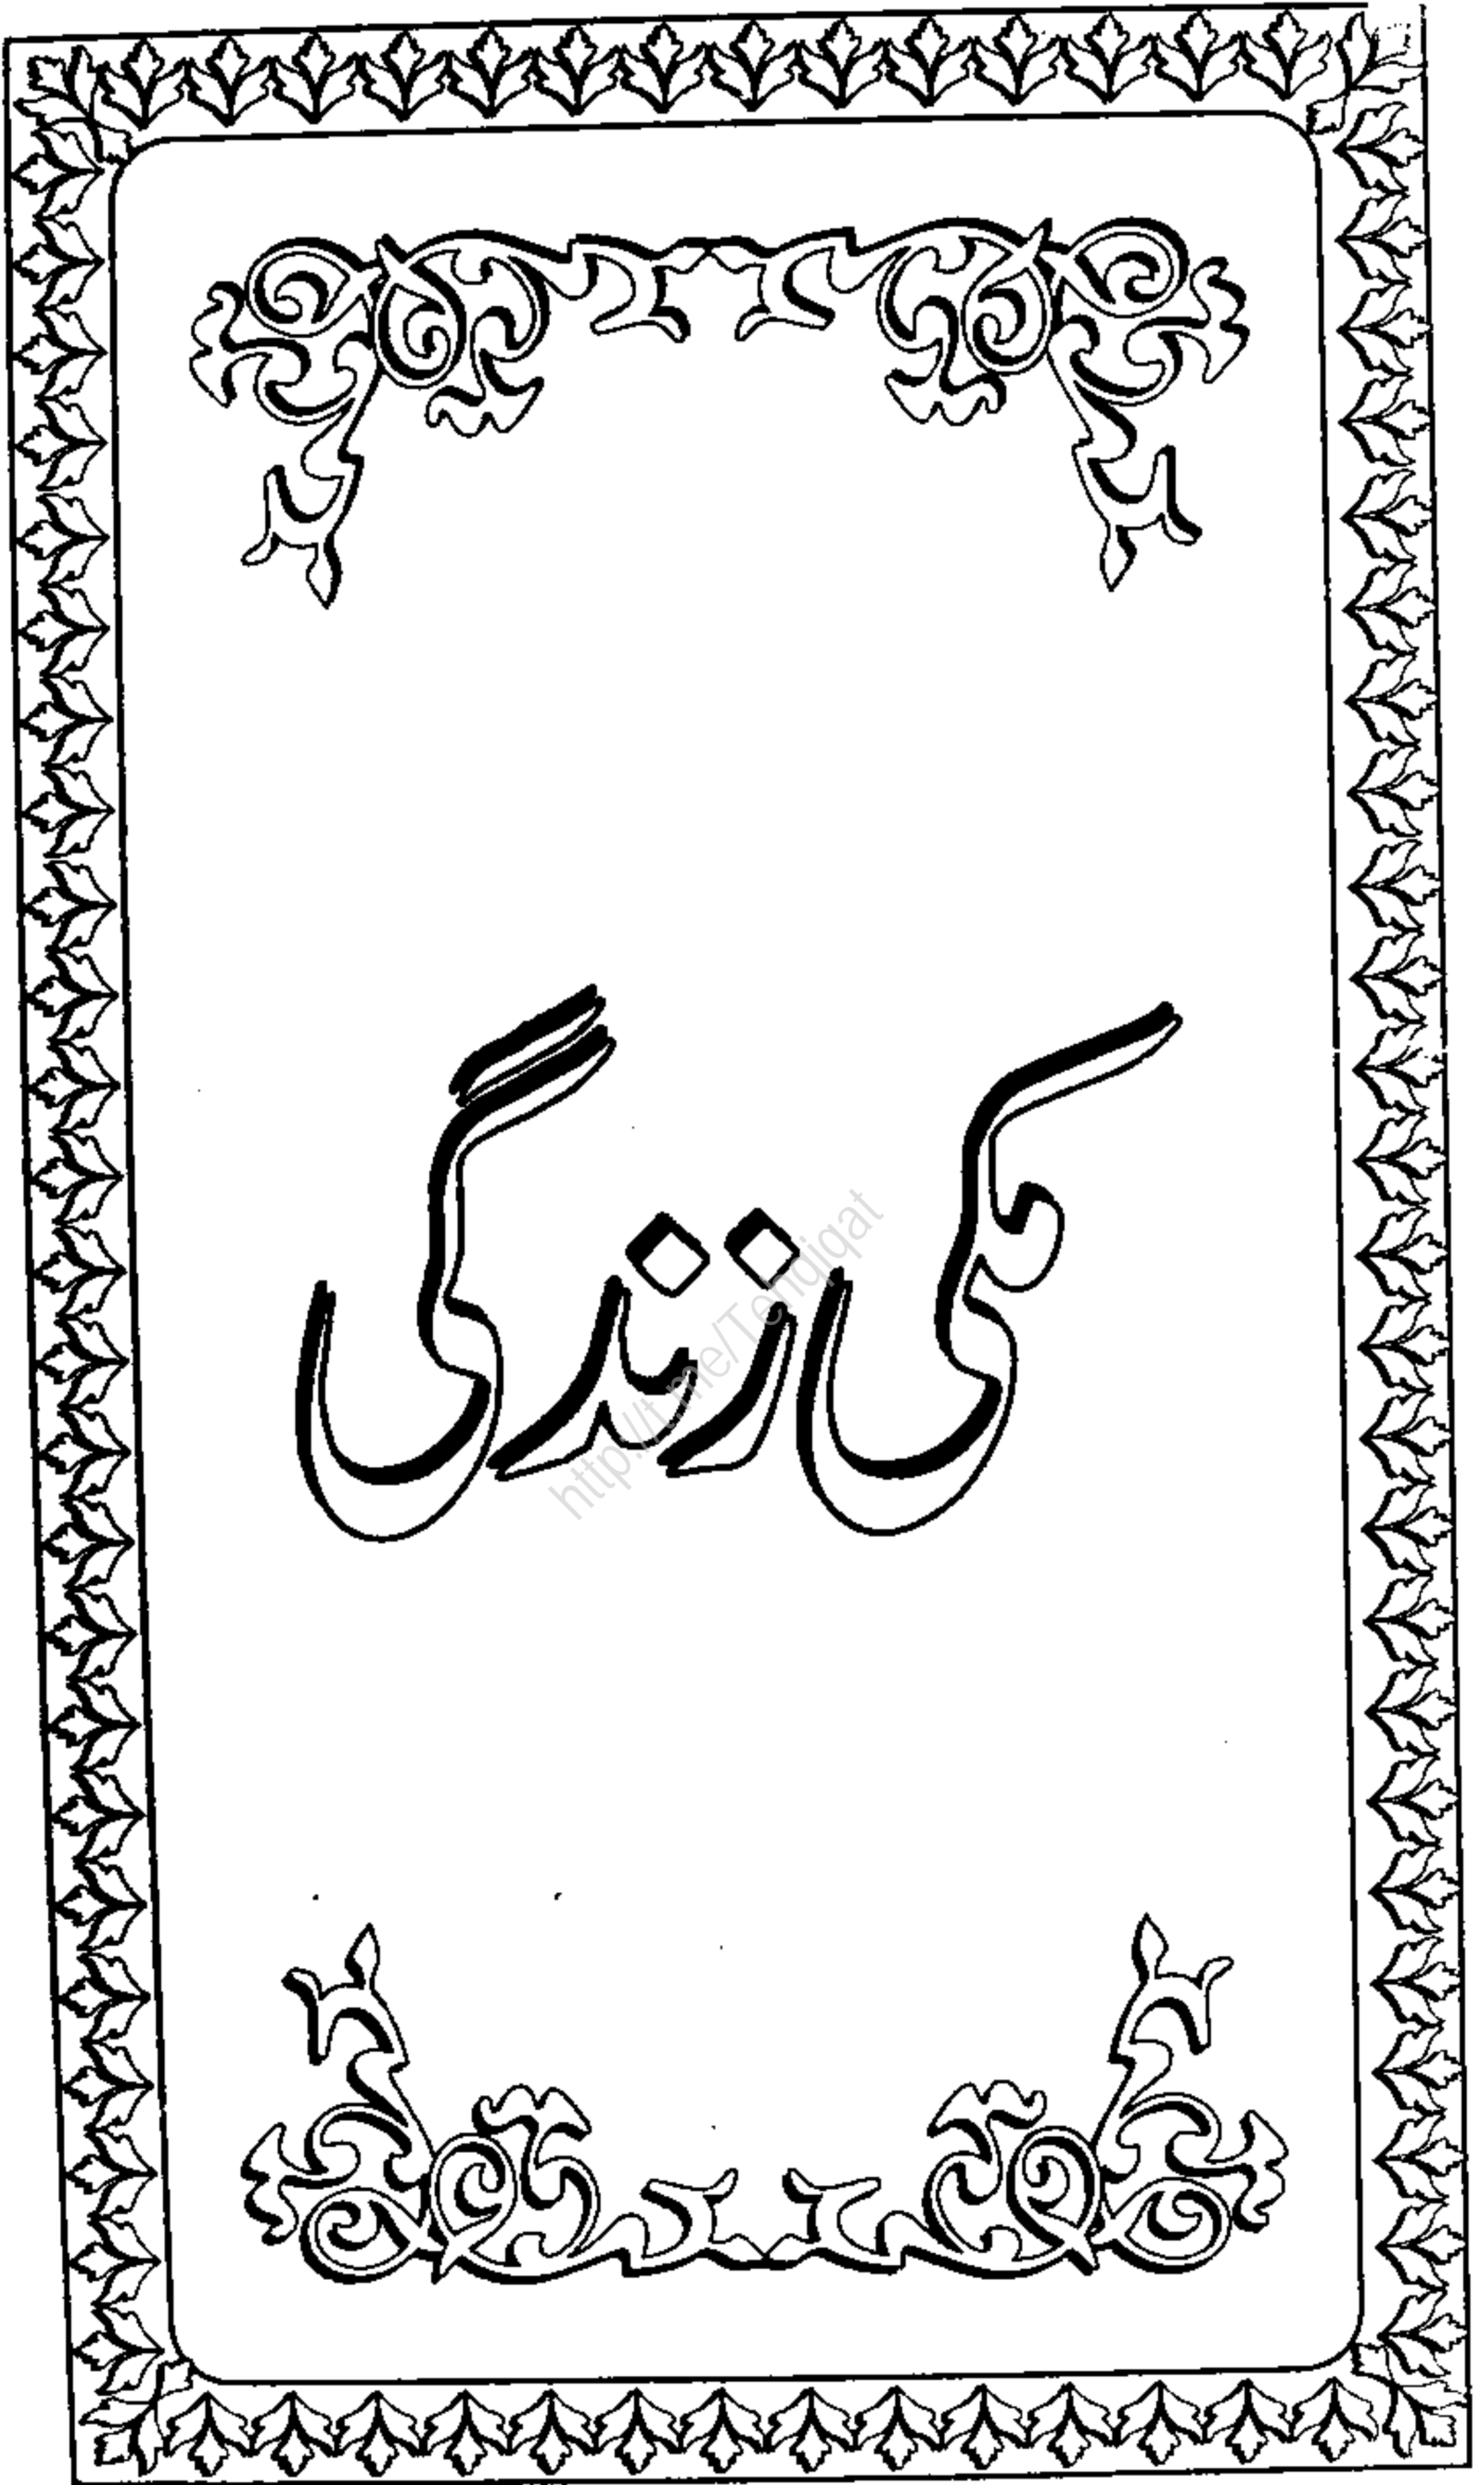 مکی زندگی
http://t.me/Tehqiqat